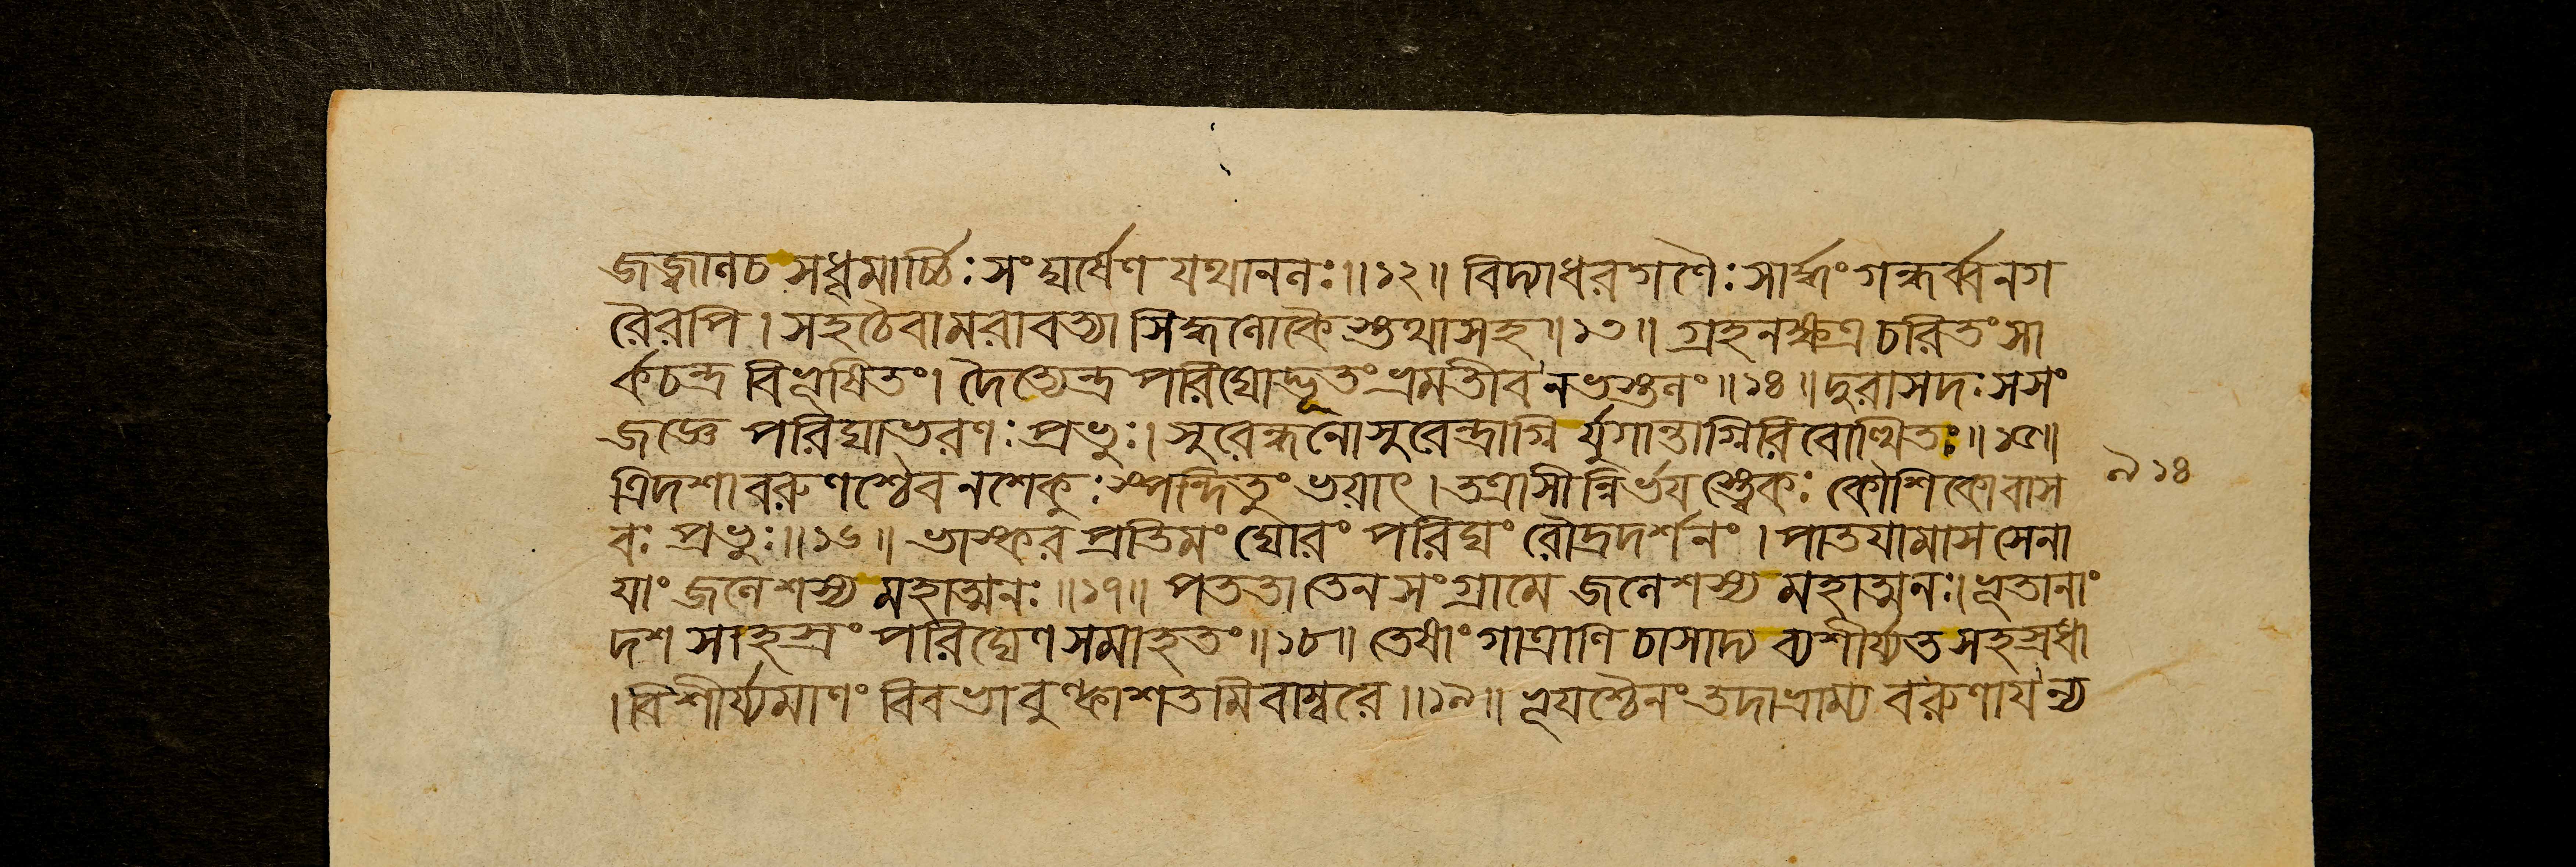 জজ্বালচ সধূমার্চ্চিঃ সংঘর্ষেণ যথানলঃ॥১২॥ বিদ্যাধরগণৈঃ সার্দ্ধং গন্ধর্ব্বনগ
রৈরপি। সহচৈবামরাবত্যা সিদ্ধলোকৈস্তথাসহ॥১৩॥ গ্রহনক্ষত্র চরিতং সা
র্কচন্দ্র বিভূষিতং। দৈত্যেন্দ্র পরিঘোদ্ভূতং ভ্রমতীব নভস্তলং॥১৪॥ দুরাসদঃ সসং
জজ্ঞে পরিঘাভরণঃ প্রভুঃ। সুরেন্ধনোসুরেন্দ্রাগ্নি র্যুগান্তাগ্নিরিবোত্থিতঃ॥১৫॥
ত্রিদশাবরুণশ্চৈব নশেকুঃ স্পন্দিতুং ভয়াৎ। তত্রাসীন্নির্ভয়স্ত্বেকঃ কৌশিকোবাস
বঃ প্রভুঃ॥১৬॥ ভাস্করপ্রতিমং ঘোরং পরিঘং রৌদ্রদর্শনং। পাতয়ামাস সেনা
য়াং জলেশস্য মহাত্মনঃ॥১৭॥ পততা তেন সংগ্রামে জলেশস্য মহাত্মনঃ। ভূতানাং
দশ সাহস্রং পরিঘেণ সমাহতং॥১৮॥ তেষাং গাত্রাণি চাসাদ্য ব্যশীর্য্যত সহস্রধা
। বিশীর্য্যমাণং বিবভাবুল্কাশতমিবাম্বরে॥১৯॥ ভূয়শ্চৈনং তদাভ্রাম্য বরুণায়ন্য
৯১৪